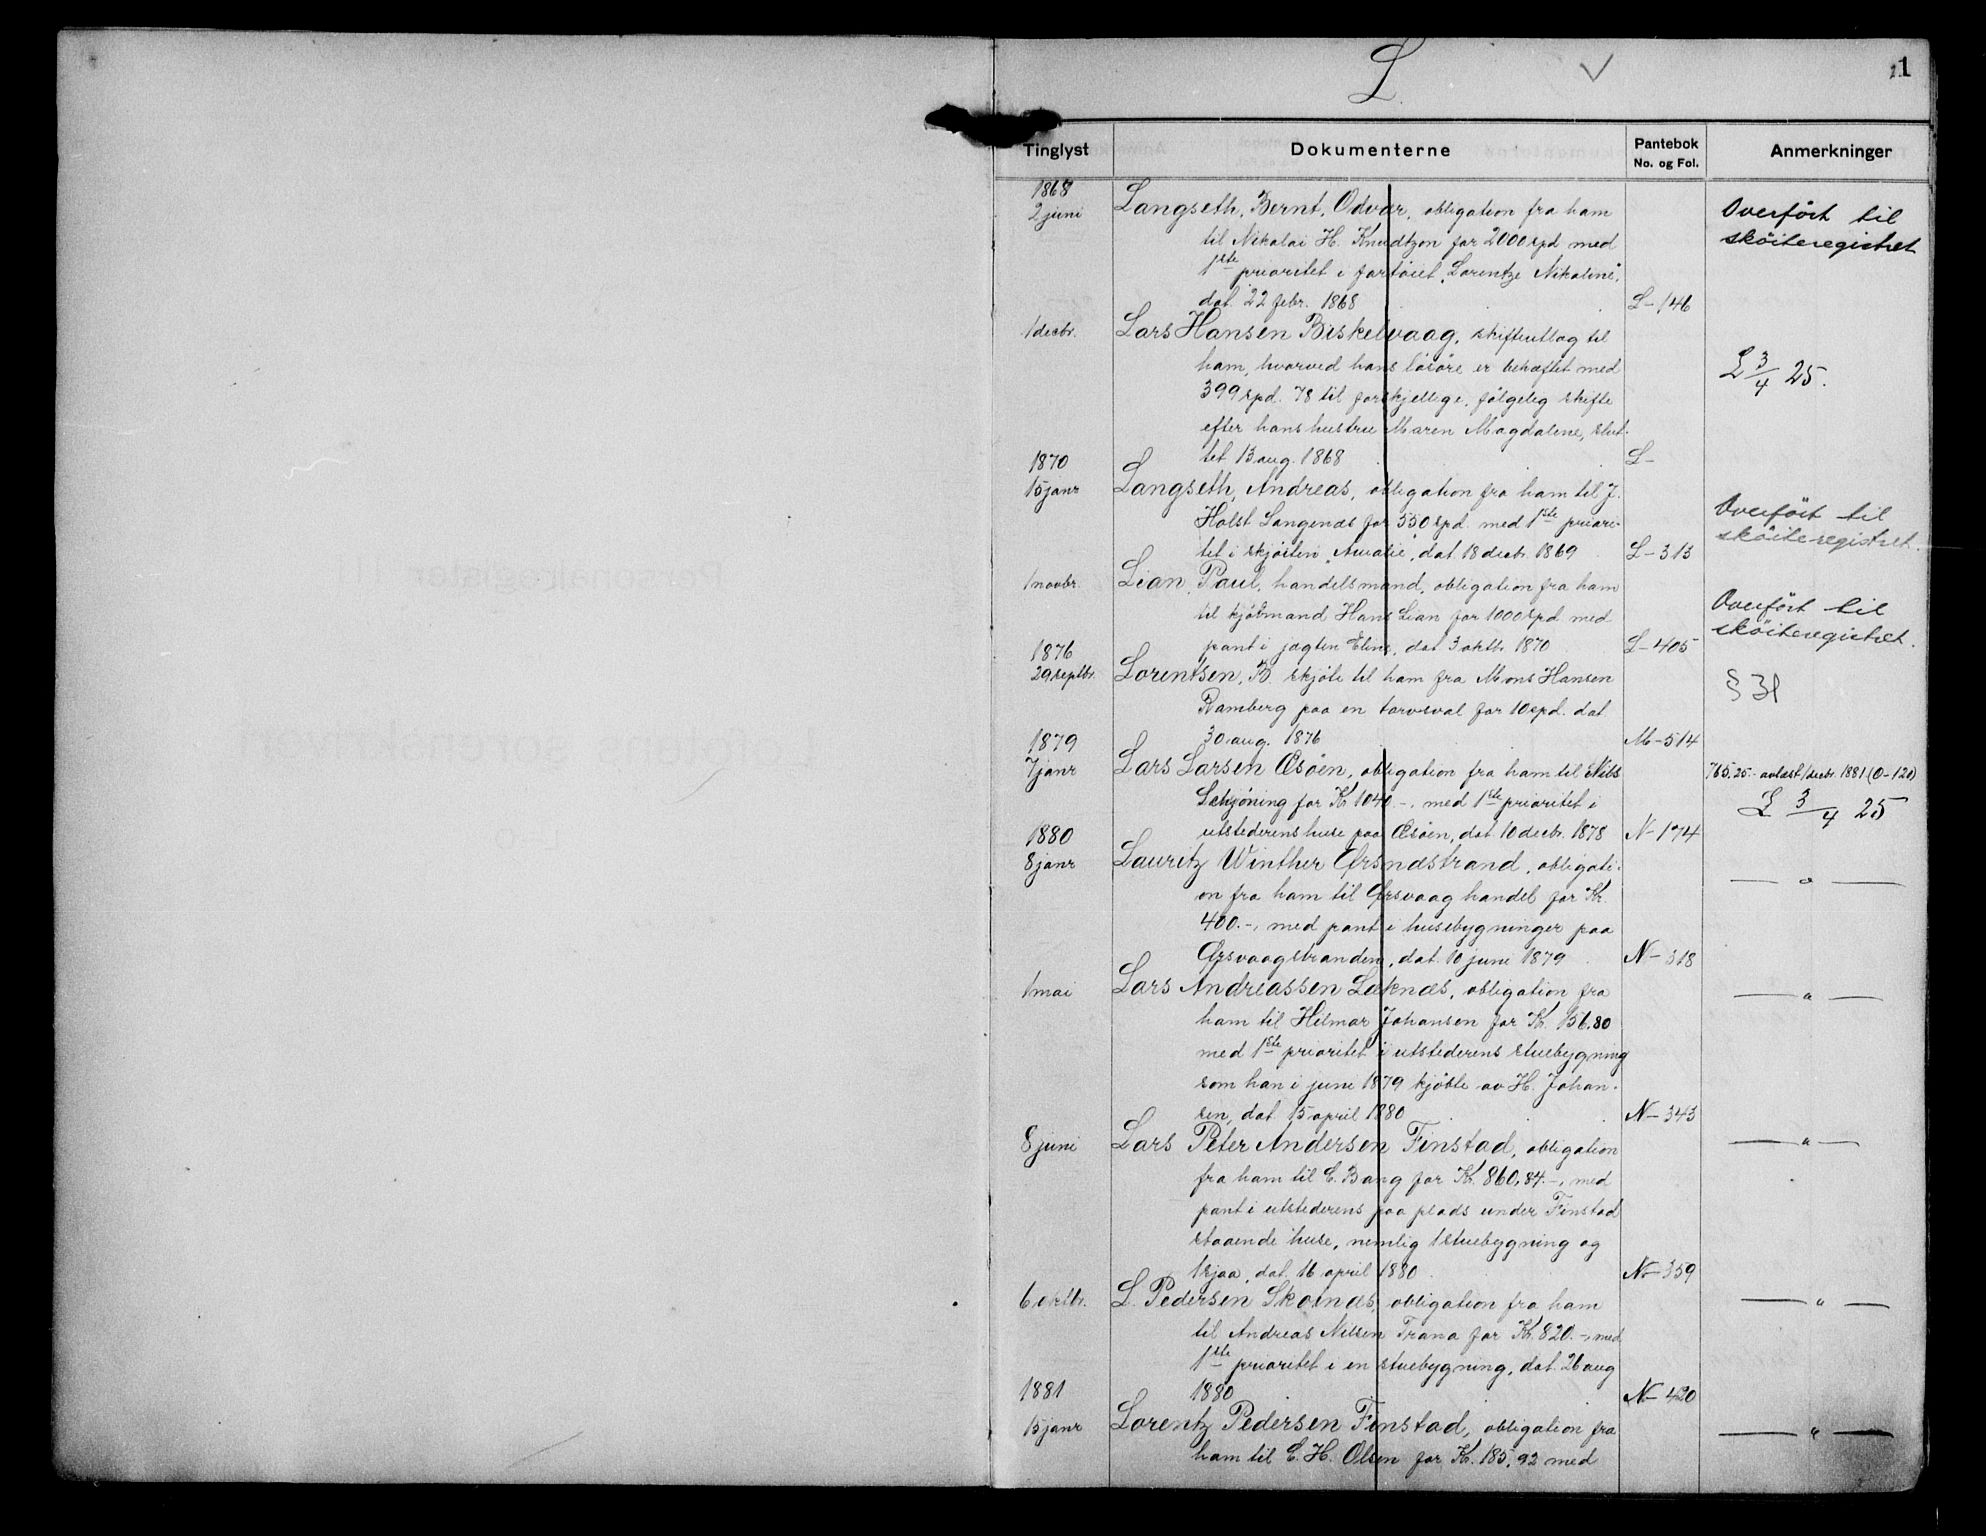 L
1
Tinglyst Dokumenterne Pantebok No. og Fol. Anmerkninger
1868
2 juni Langseth, Bernt, Odvar, obligation fra ham
til Nikolai H. Knudtzon for 2000 spd med
1ste prioritet i fartøiet „Lorentze Nikoline",
dat. 22 febr. 1868 L-146
Overført til
skøiteregistret
1 decbr. Lars Hansen Biskelvaag, skifteutlæg til
ham, hvorved hans løsøre er behæftet med
399 spd. 78 til forskjellige, følgelig skifte
efter hans hustru Maren Magdalene, slut-
tet 13 aug. 1868 L-
L 3/4 25.
1870
15 janr Langseth, Andreas, obligation fra ham til J.
Holst Langenæs for 550 spd. med 1ste priori-
tet i skjøiten „Amalie", dat 18 decbr. 1869 L-313
Overført til
skøiteregistret.
1 novbr. Lian, Paul, handelsmand, obligation fra ham
til kjøbmand Hans Lian for 1000 spd med
pant i jagten Eline, dat 3 oktb. 1870 L-405
Overført til
skøiteregistret.
1876
29 septbr. Lorentsen, B. skjøte til ham fra Mons Hansen
Ramberg paa en torvsval for 10 spd. dat
30 aug. 1876 M-514
§ 31
1879
7 janr Lars Larsen Æsøen, obligation fra ham til Nils
Schjøning for Kr 1040 -, med 1ste prioritet i
utstederens huse paa Æsøen, dat 10 decbr. 1878 N-174
765,25.- avlæst 1 decbr. 1881 (O-120)
L 3/4 25
1880
8 janr Lauritz Winther Ørsnæstrand, obligati-
on fra ham til Ørsvaag handel for Kr.
400.-, med pant i husebygninger paa
Ørsvaagstranden, dat. 10 juni 1879 N-318
— " —
1 mai Lars Andreassen Leknæs, obligation fra
ham til Hilmar Johansen for Kr. 156.80
med 1ste prioritet i utstederens stuebygning
som han i juni 1879 kjøbte av H. Johan-
sen, dat. 15 april 1880 N-343
— " —
8 juni Lars Peter Andersen Finstad, obligation
fra ham til E. Bang for Kr. 860,84.-, med
pant i utstederens paa plads under Finstad
staaende huse, nemlig 1 stuebygning og
1 sjaa, dat. 16 april 1880 N-359
— " —
6 oktbr. L. Pedersen Skotnæs, obligation fra ham
til Andreas Nilsen Trana for Kr. 820.-, med
1ste prioritet i en stuebygning, dat. 26 aug
1880 N-420
— " —
1881
15 janr Lorentz Pedersen Finstad, obligation fra
ham til E. H. Olsen for Kr. 185,92 med
— " —